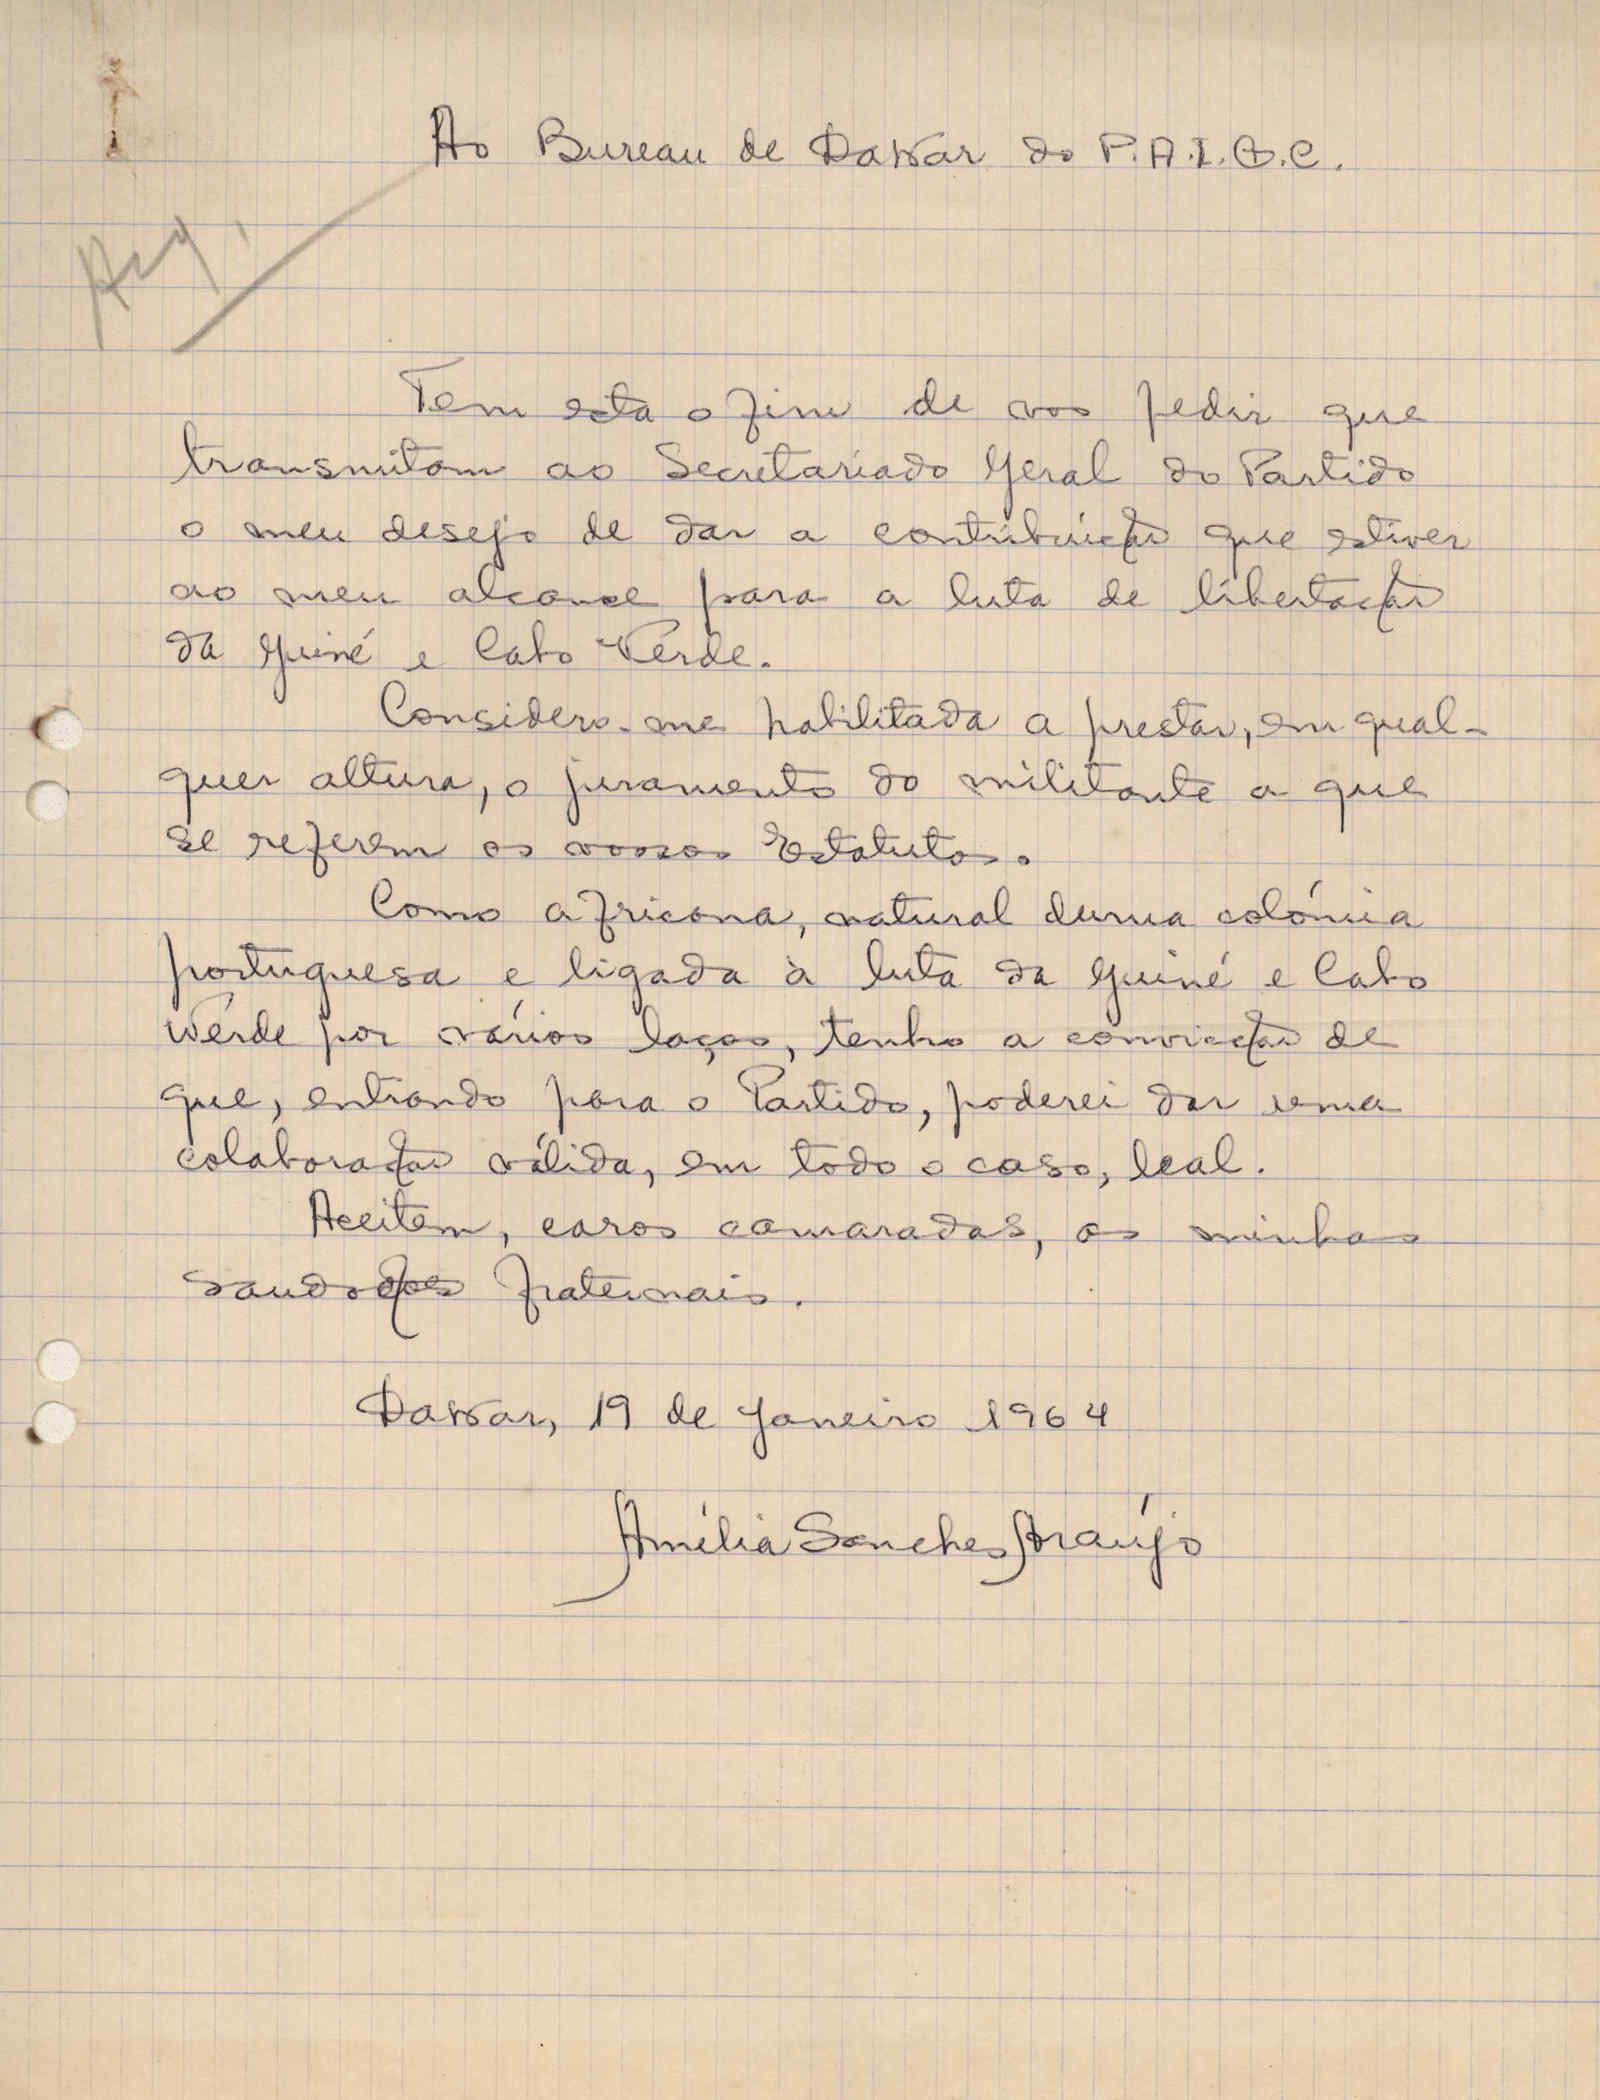 Ao Bureau de Dakar do P.A.I.G.C.
Arq.
Tem esta o fim de vos pedir que
transmitam ao Secretariado Geral do Partido
o meu desejo de dar a contribuição que estiver
ao meu alcance para a luta de libertação
da Guiné e Cabo Verde.
Considero-me habilitada a prestar, em qual-
quer altura, o juramento do militante a que
se referem os vossos Estatutos.
Como africana, natural duma colónia
portuguesa e ligada à luta da Guiné e Cabo
Verde por vários laços, tenho a convicção de
que, entrando para o Partido, poderei dar uma
colaboração válida, em todo o caso, leal.
Aceitem, caros camaradas, as minhas
saudações fraternais.
Dakar, 19 de Janeiro 1964
Amélia Sanches Araújo